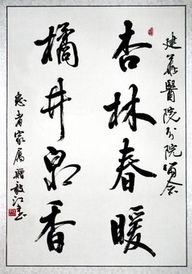 建華醫院分院留念
杏林春暖
橘井泉香
患者家属